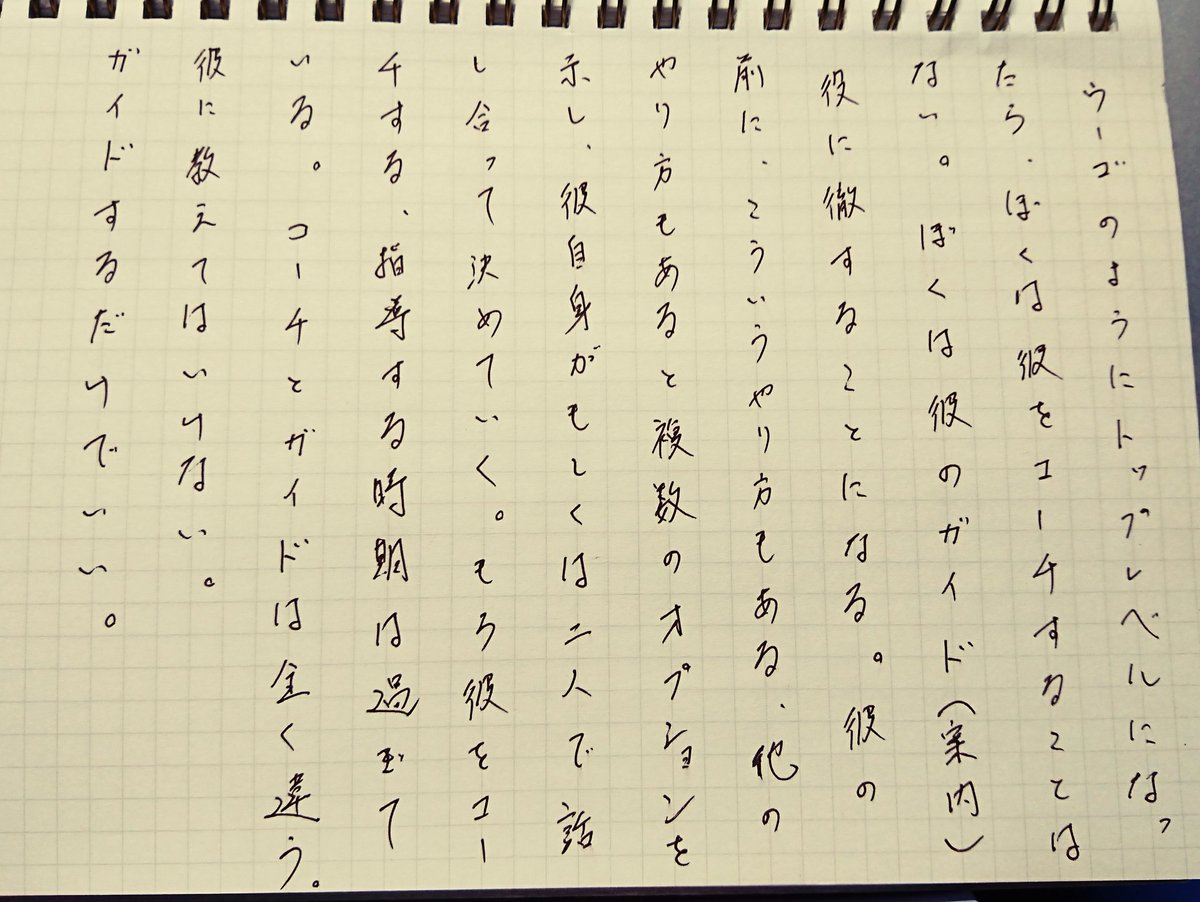 ウーゴのようにトップレベルになっ
たら、ぼくは彼をコーチすることは
ない。ぼくは彼のガイド(案内)
役に徹することになる。彼の
前に、こういうやり方もある、他の
やり方もあると複数のオプションを
示し、彼自身がもしくは二人で話
し合って決めていく。もう彼をコー
チする、指導する時期は過ぎて
いる。コーチとガイドは全く違う。
彼に教えてはいけない。
ガイドするだけでいい。